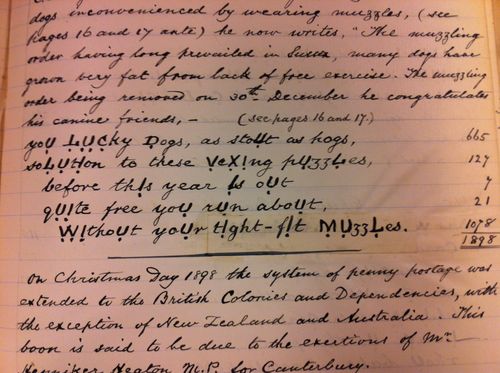 dogs inconvenienced by wearing muzzles, (see
pages 16 and 17 ante) he now writes, "The muzzling
order having long prevailed in Sussex, many dogs have
grown very fat from lack of free exercise. The muzzling
order being removed on 30th December he congratulates
his canine friends, - (see pages 16 and 17.)
yoU LUCky Dogs, as stoUt as hogs, 665
soLUtIon to these VeXIng pUzzLes, 127
before thIs year Is oUt 7
qUIte free yoU rUn aboUt, 21
WIthoUt yoUr tIght-fIt MUzzLes. 1078
1898
On Christmas Day 1898 the system of penny postage was
extended to the British Colonies and Dependencies, with
the exception of New Zealand and Australia This
boon is said to be due to the exertions of Mr
Henniker Heaton M.P. for Canterbury.